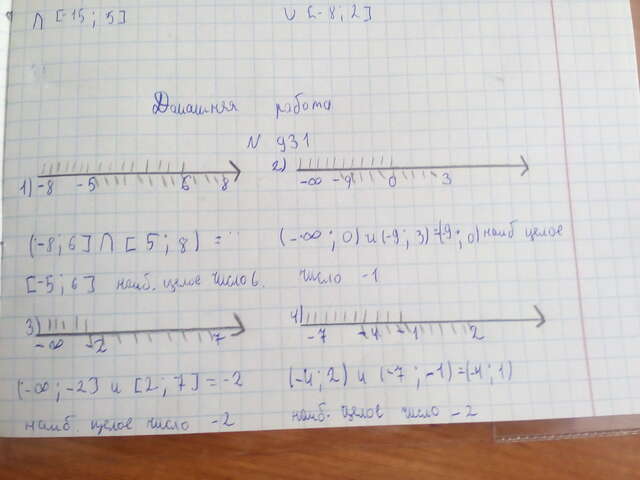 ∩ [-15; 5] ∪ [-8; 2]
Домашняя работа
N 931
1) -8 -5 6 8
2) -∞ -9 0 3
(-8; 6] ∩ [5; 8) =
[-5; 6] наиб. целое число 6.
(-∞; 0) и (-9; 3) = (-9; 0) наиб целое
число -1
3) -∞ -2 7
4) -7 -4 -1 2
(-∞; -2] и [2; 7] = -2
наиб. целое число -2
(-4; 2) и (-7; -1) = (-4; 1)
наиб. целое число -2